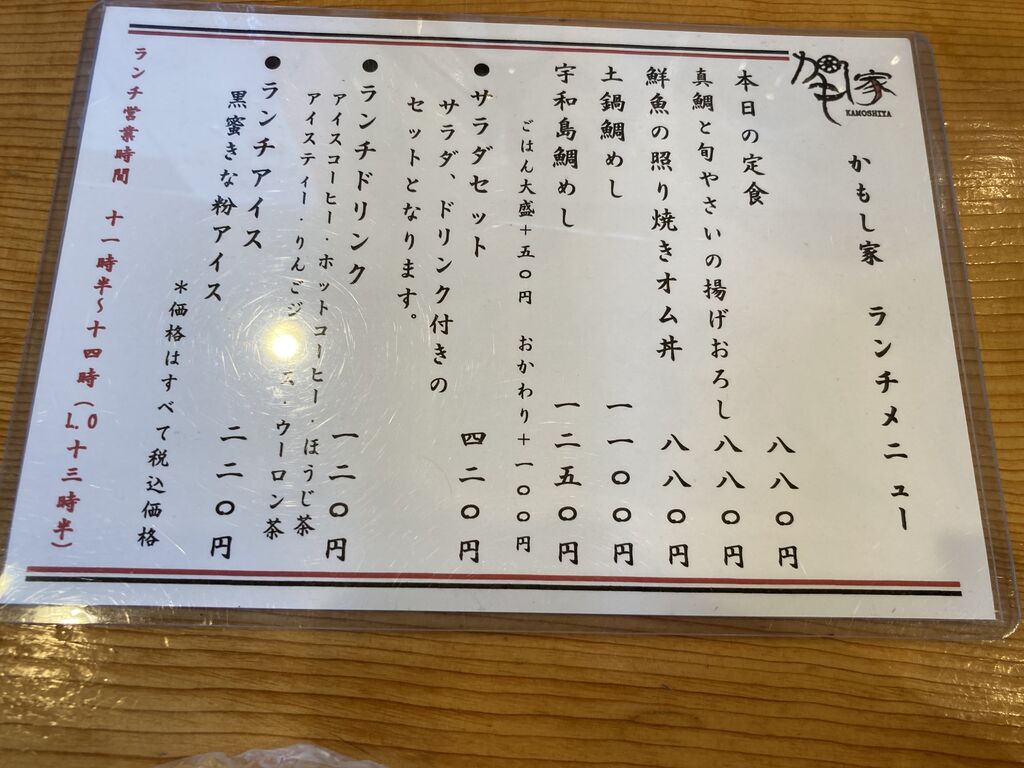 家
KAMOSHIYA
かもし家 ランチメニュー
本日の定食 八八〇円
真鯛と旬やさいの揚げおろし 八八〇円
鮮魚の照り焼きオム丼 八八〇円
土鍋鯛めし 一一〇〇円
宇和島鯛めし 一二五〇円
ごはん大盛+五〇円 おかわり+一〇〇円
●サラダセット 四二〇円
サラダ、ドリンク付きの
セットとなります。
●ランチドリンク 一二〇円
アイスコーヒー・ホットコーヒー・ほうじ茶
アイスティー・りんごジュース・ウーロン茶
●ランチアイス
黒蜜きな粉アイス 二二〇円
*価格はすべて税込価格
ランチ営業時間 十一時半~十四時(L.O十三時半)